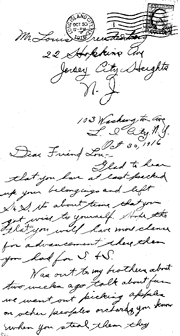 Mr. Louis
22 Hopkins Ave
Jersey City Heights
N. J.
103 Washington Ave
L. I. City N.Y.
Oct 30, 1916
Dear Friend Lou:-
Glad to hear
that you have at last packed
up your belongings and left
S & S. Its about time that you
got wise to yourself.
that you will have more chance
for advancement there than
you had for S & S.
Was out to my brothers about
two weeks ago talk about fun
we went out picking apples
on other peoples orchards you know
when you steal them they